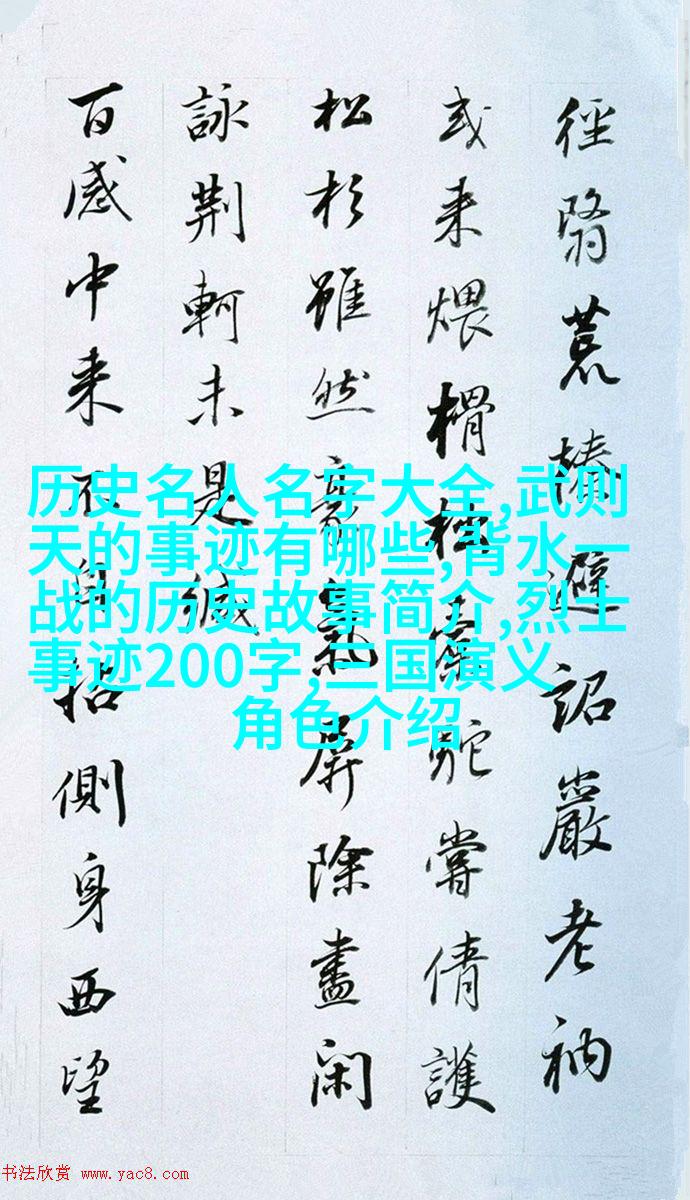 徑翳荒榛避詔嚴老衲
或来煨榾柮橐駝嘗倩護
松杉雖然豪氣屏除盡閑
詠荆軻未是緘
百感中来不自側身西望
历史名人名字大全,武则
天的事迹有哪些,背水一
战的历史故事简介,烈士
事迹200字,三国演义
角色介绍
书法欣赏 www.yac8.com